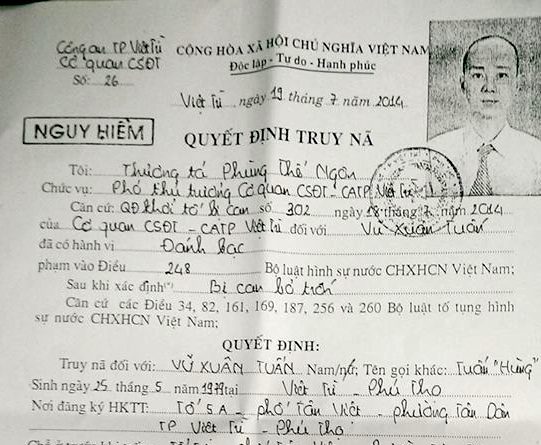 Công an TP Việt Trì
Cơ quan CSĐT
Số: 26
CỘNG HÒA XÃ HỘI CHỦ NGHĨA VIỆT NAM
Độc lập - Tự do - Hạnh phúc
Việt Trì, ngày 19 tháng 7 năm 2014
NGUY HIỂM
QUYẾT ĐỊNH TRUY NÃ
Tôi: Thượng tá Phùng Thế Ngôn
Chức vụ: Phó thủ trưởng Cơ quan CSĐT - CATP Việt Trì
Căn cứ: QĐ khởi tố bị can số 302 ngày 18 tháng 7 năm 2014
của Cơ quan CSĐT - CATP Việt Trì đối với Vũ Xuân Tuấn
đã có hành vi Đánh bạc
phạm vào Điều 248 Bộ luật hình sự nước CHXHCN Việt Nam;
Sau khi xác định(*) Bị can bỏ trốn
Căn cứ các Điều 34, 82, 161, 169, 187, 256 và 260 Bộ luật tố tụng hình
sự nước CHXHCN Việt Nam;
QUYẾT ĐỊNH:
Truy nã đối với: VŨ XUÂN TUẤN Nam/nữ; Tên gọi khác: Tuấn "Hùng"
Sinh ngày 25 tháng 5 năm 1979 tại Việt Trì - Phú Thọ
Nơi đăng ký HKTT: Tổ 5A - phố Tân Việt - phường Tân Dân
TP Việt Trì - Phú Thọ